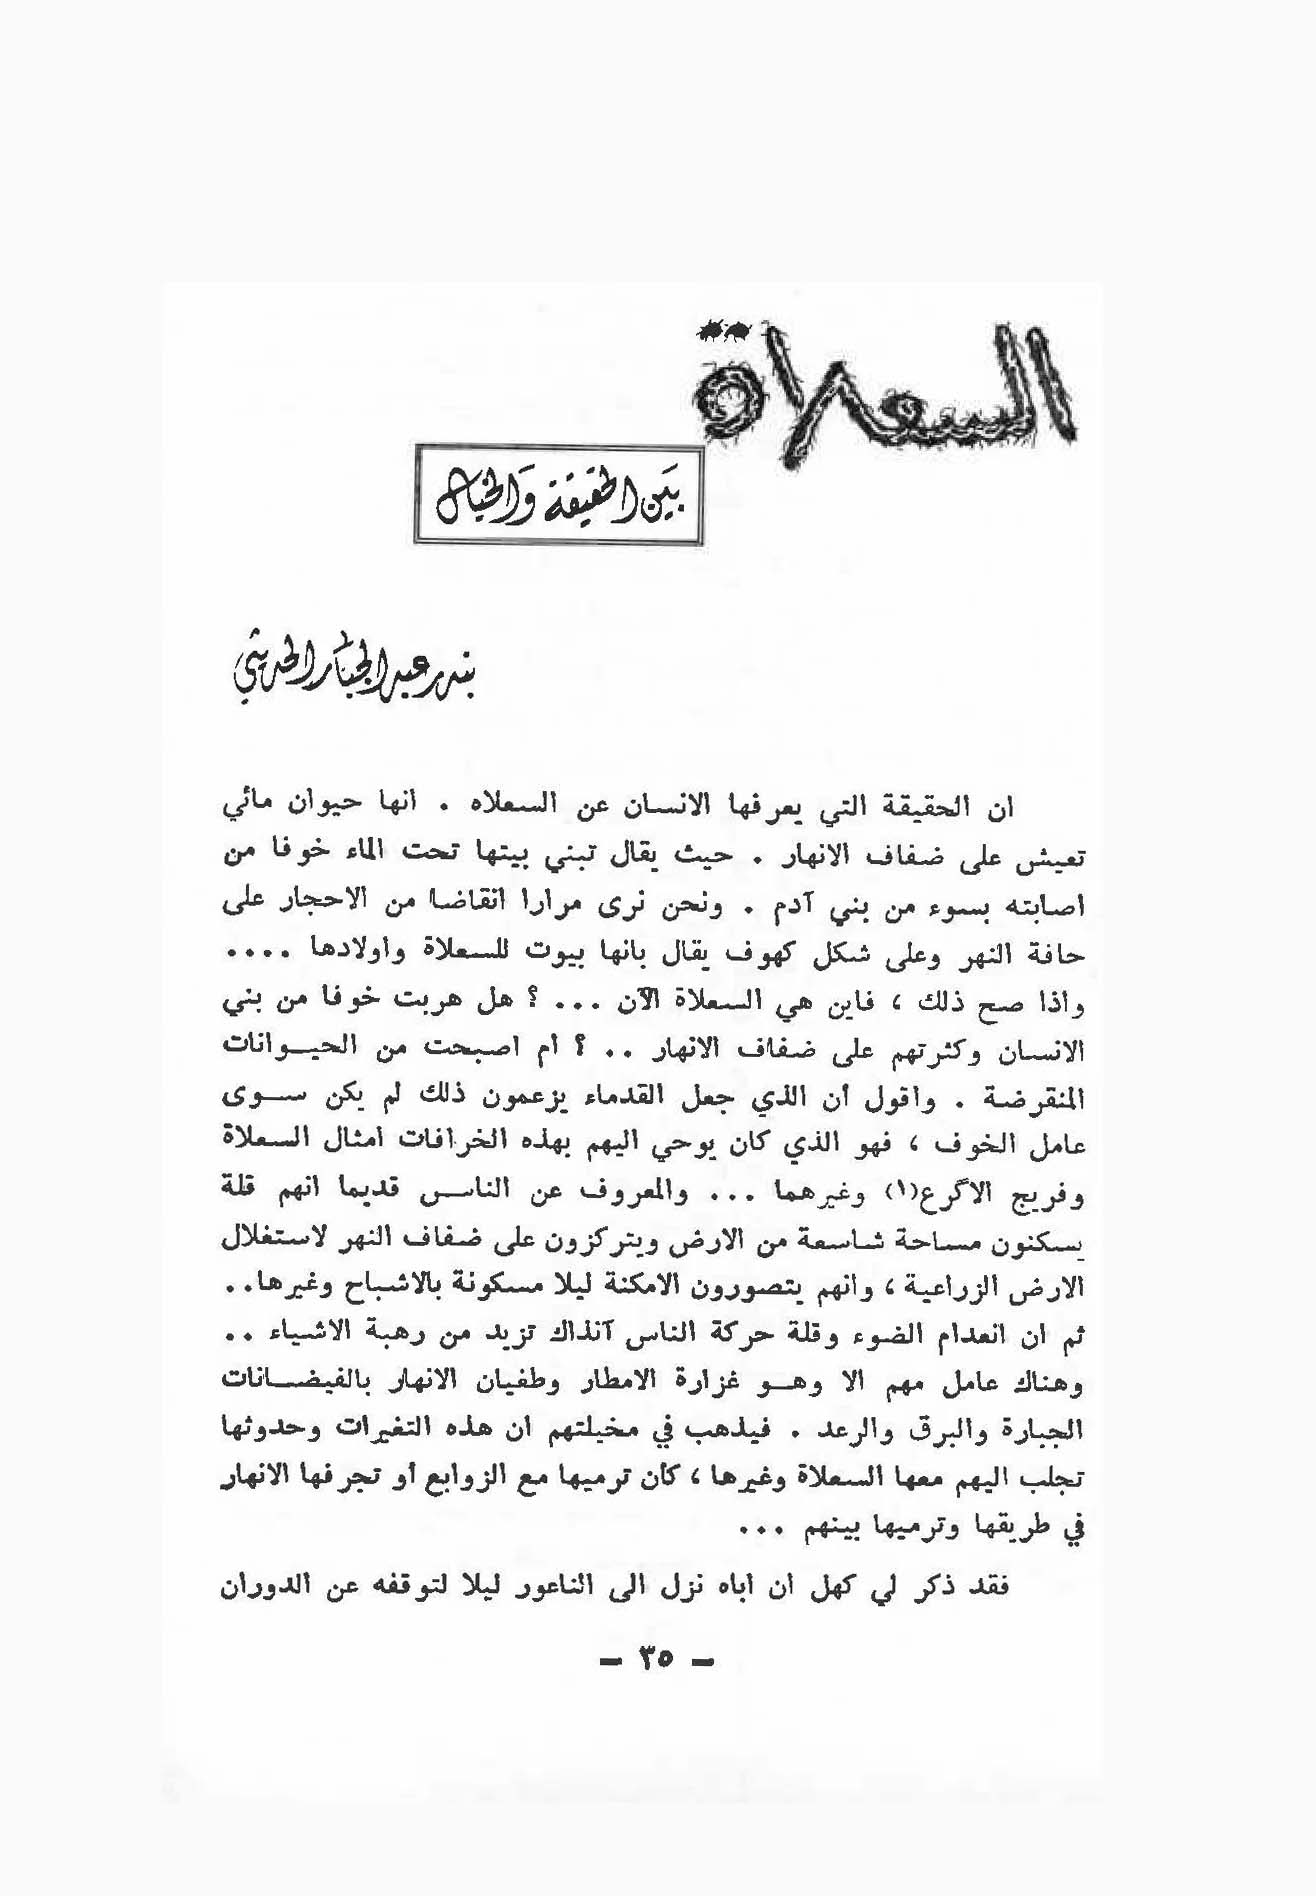 السعلاة
بين الحقيقة والخيال
بندر عبد الجبار الحديثي
ان الحقيقة التي يعرفها الانسان عن السعلاه . انها حيوان مائي
تعيش على ضفاف الانهار . حيث يقال تبني بيتها تحت الماء خوفا من
اصابته بسوء من بني آدم . ونحن نرى مرارا انقاضا من الاحجار على
حافة النهر وعلى شكل كهوف يقال بانها بيوت للسعلاة واولادها ....
واذا صح ذلك ، فاين هي السعلاة الآن ... ؟ هل هربت خوفا من بني
الانسان وكثرتهم على ضفاف الانهار .. ؟ أم اصبحت من الحيوانات
المنقرضة . واقول أن الذي جعل القدماء يزعمون ذلك لم يكن سوى
عامل الخوف ، فهو الذي كان يوحي اليهم بهذه الخرافات امثال السعلاة
وفريج الاگرع(١) وغيرهما ... والمعروف عن الناس قديما انهم قلة
يسكنون مساحة شاسعة من الارض ويتركزون على ضفاف النهر لاستغلال
الارض الزراعية ، وانهم يتصورون الامكنة ليلا مسكونة بالاشباح وغيرها..
ثم ان انعدام الضوء وقلة حركة الناس آنذاك تزيد من رهبة الاشياء ..
وهناك عامل مهم الا وهو غزارة الامطار وطغيان الانهار بالفيضانات
الجبارة والبرق والرعد . فيذهب في مخيلتهم ان هذه التغيرات وحدوثها
تجلب اليهم معها السعلاة وغيرها ، كان ترميها مع الزوابع أو تجرفها الانهار
في طريقها وترميها بينهم ...
فقد ذكر لي كهل ان اباه نزل الى الناعور ليلا لتوقفه عن الدوران
– ٣٥ –